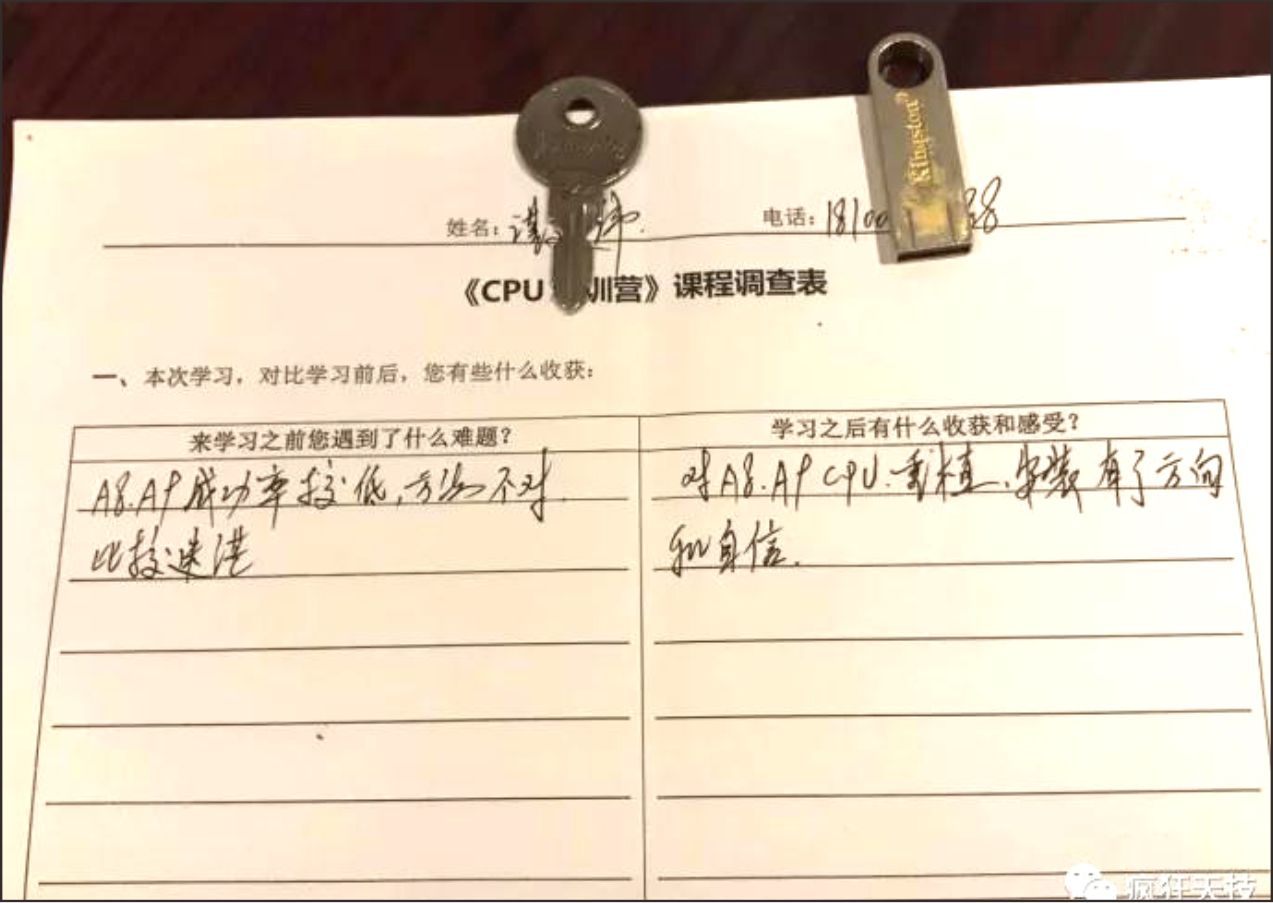 Kingston
姓名:
电话: 18100 38
《CPU 训营》课程调查表
一、本次学习，对比学习前后，您有些什么收获：
来学习之前您遇到了什么难题？
A8.A9成功率较低，方法不对.
比较迷茫
学习之后有什么收获和感受？
对A8.A9 CPU.重植、安装有了方向
和自信.
疯狂天技